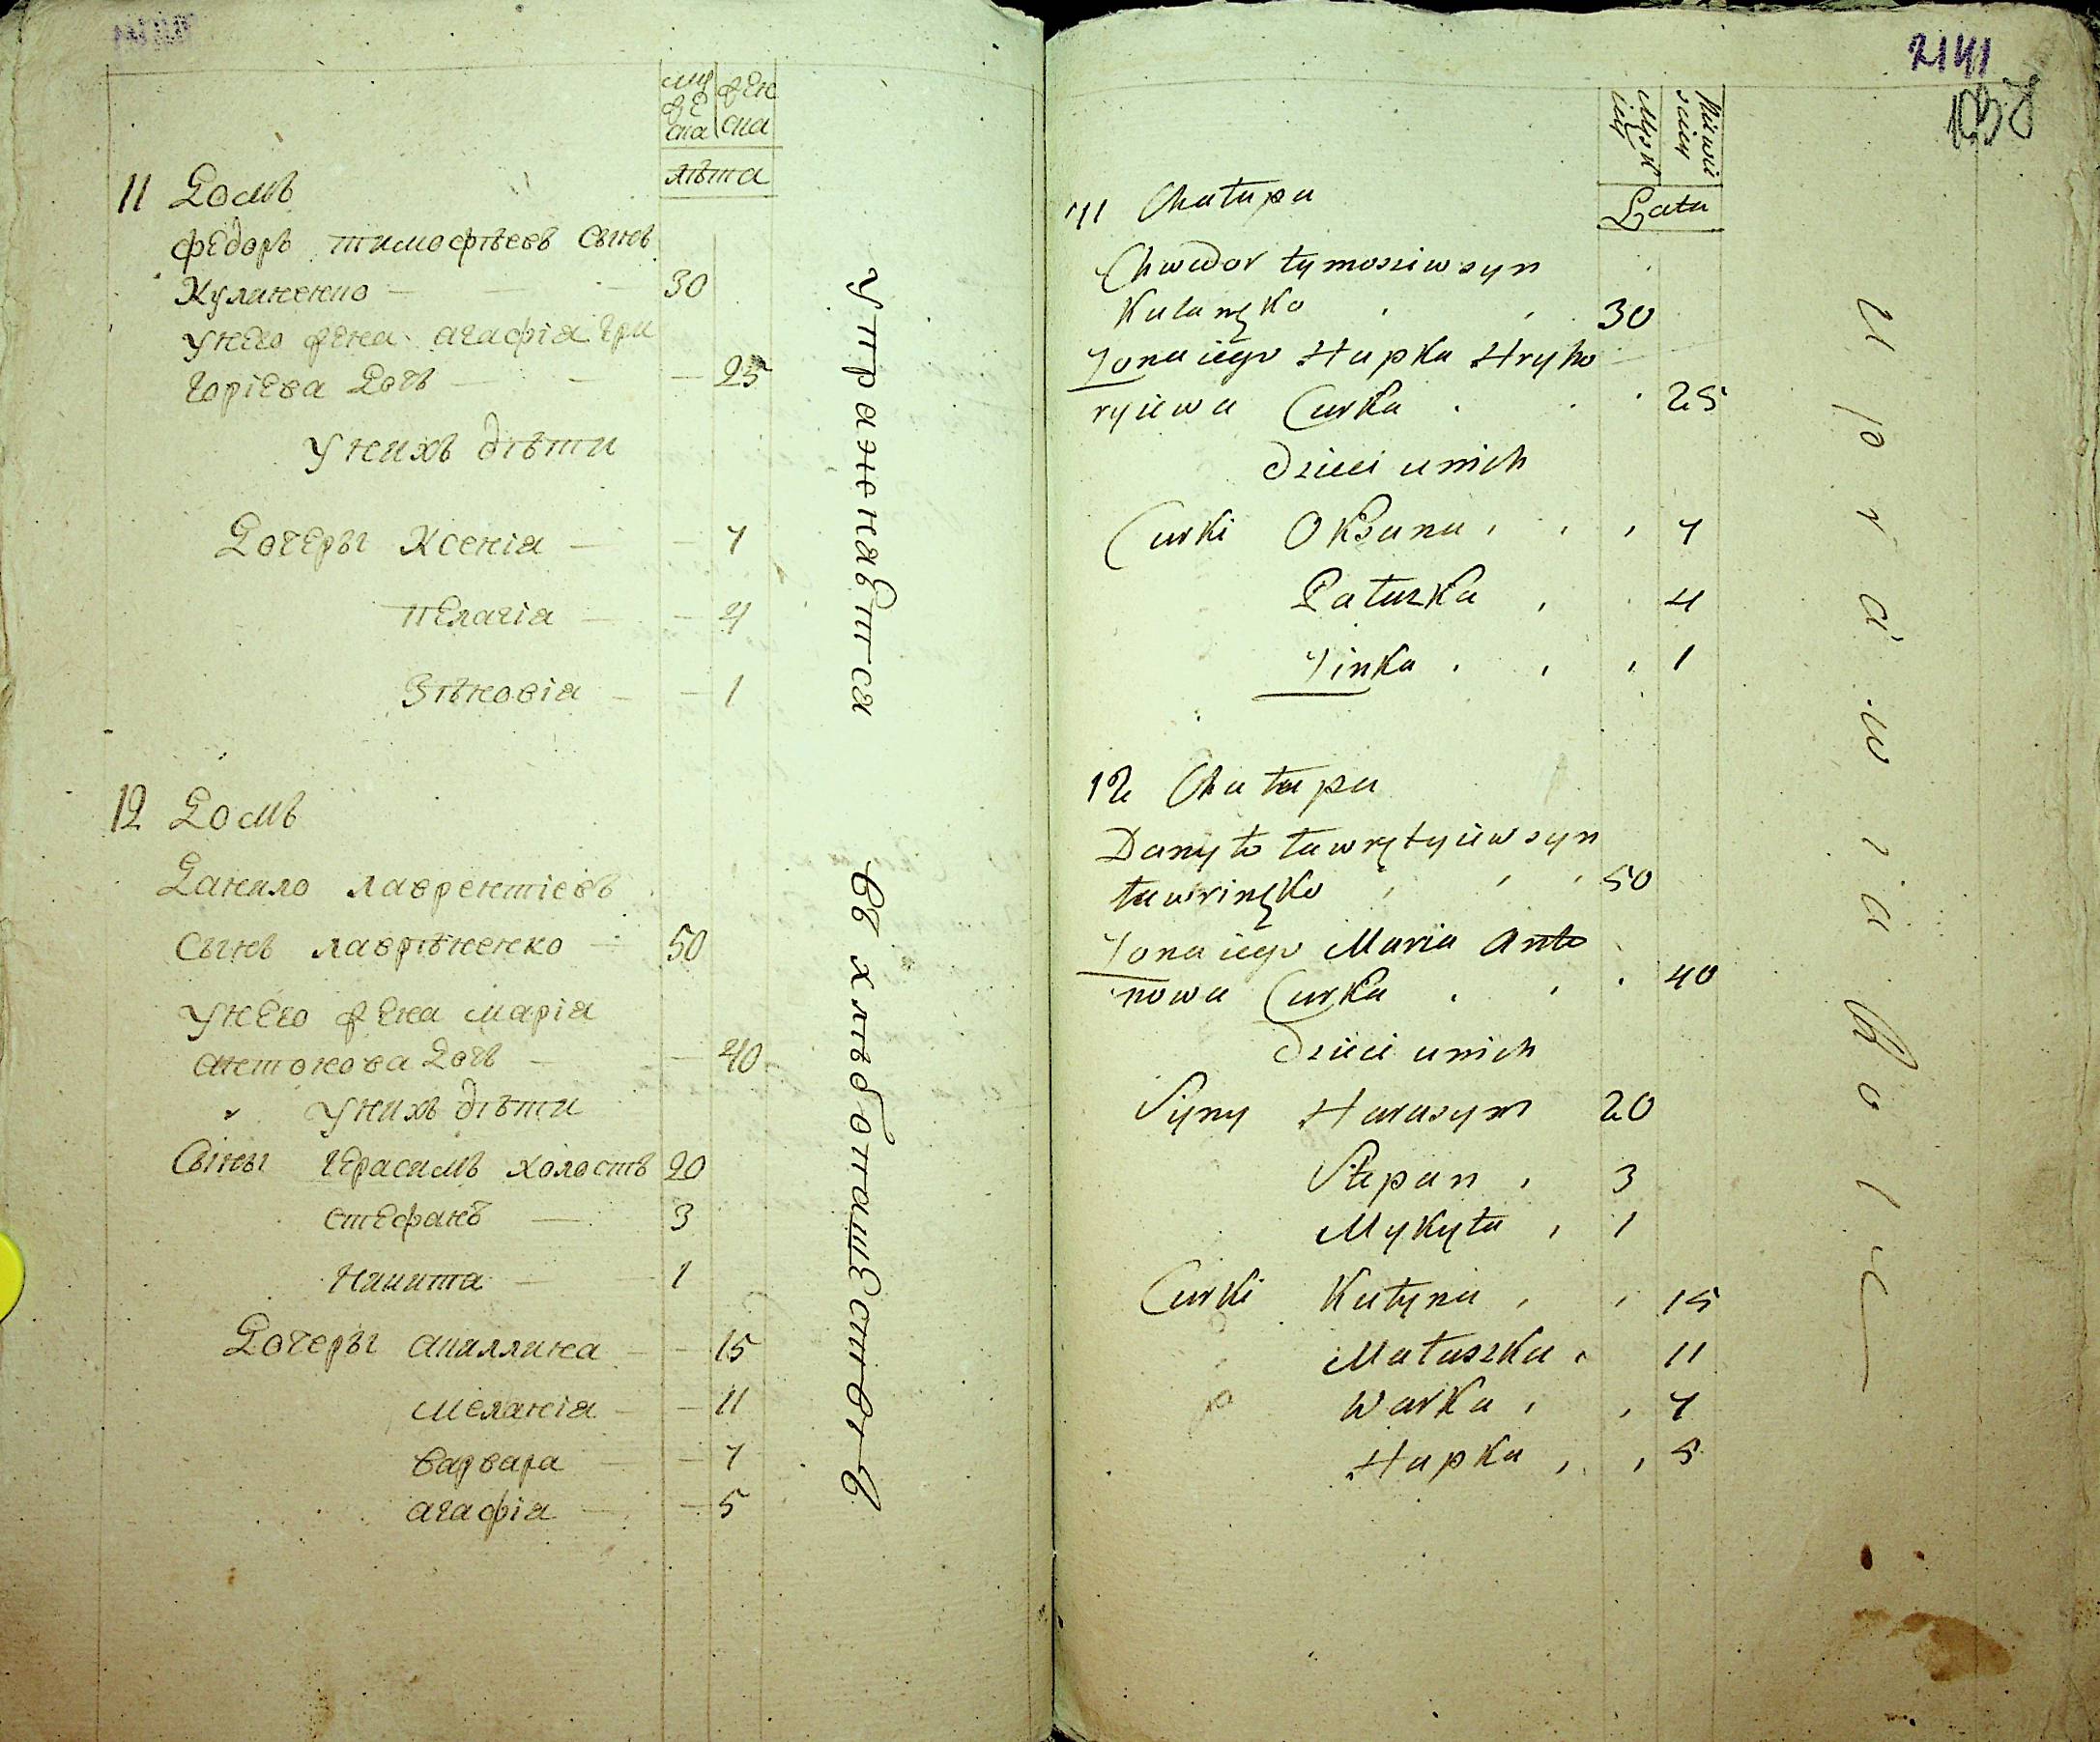 муже
ска
жен
ска
лѣта
11 Домъ
Федоръ Тимофѣевъ Сынъ
Куланенко 30
У него жена Агафія Гри
горіева Дочь 25
У нихъ дѣти
Дочеры Ксенія 7
Пелагія 4
Зѣновія 1
12 Домъ
Данило Лаврентіевъ
Сынъ Лаврѣненко 50
У него жена Марія
Антонова Дочь 40
У нихъ дѣти
Сыны Герасимъ холостъ 20
Стефанъ 3
Никита 1
Дочеры Апиллина 15
Меланія 11
Варвара 7
Агафія 5
Упражнявтся
въ хлѣбопашествѣ
2141
Lata
11 Chałupa
Chwedor tymosziw syn
Kulanęko 30
Żona iego Hapka Hryho
ryiewa Curka 25
Dzieci u nich
Curki Oksana 7
Pałuszka 4
Zinka 1
12 Chałupa
Danyło ławrętyiiw syn
ławrinęko 50
Żona iego Maria Anto
nowa Curka 40
Dzieci u nich
Syny Harasym 20
Stepan 3
Mykyta 1
Curki Kułyna 15
Małaszka 11
Warka 7
Hapka 5
uprawia Rolę